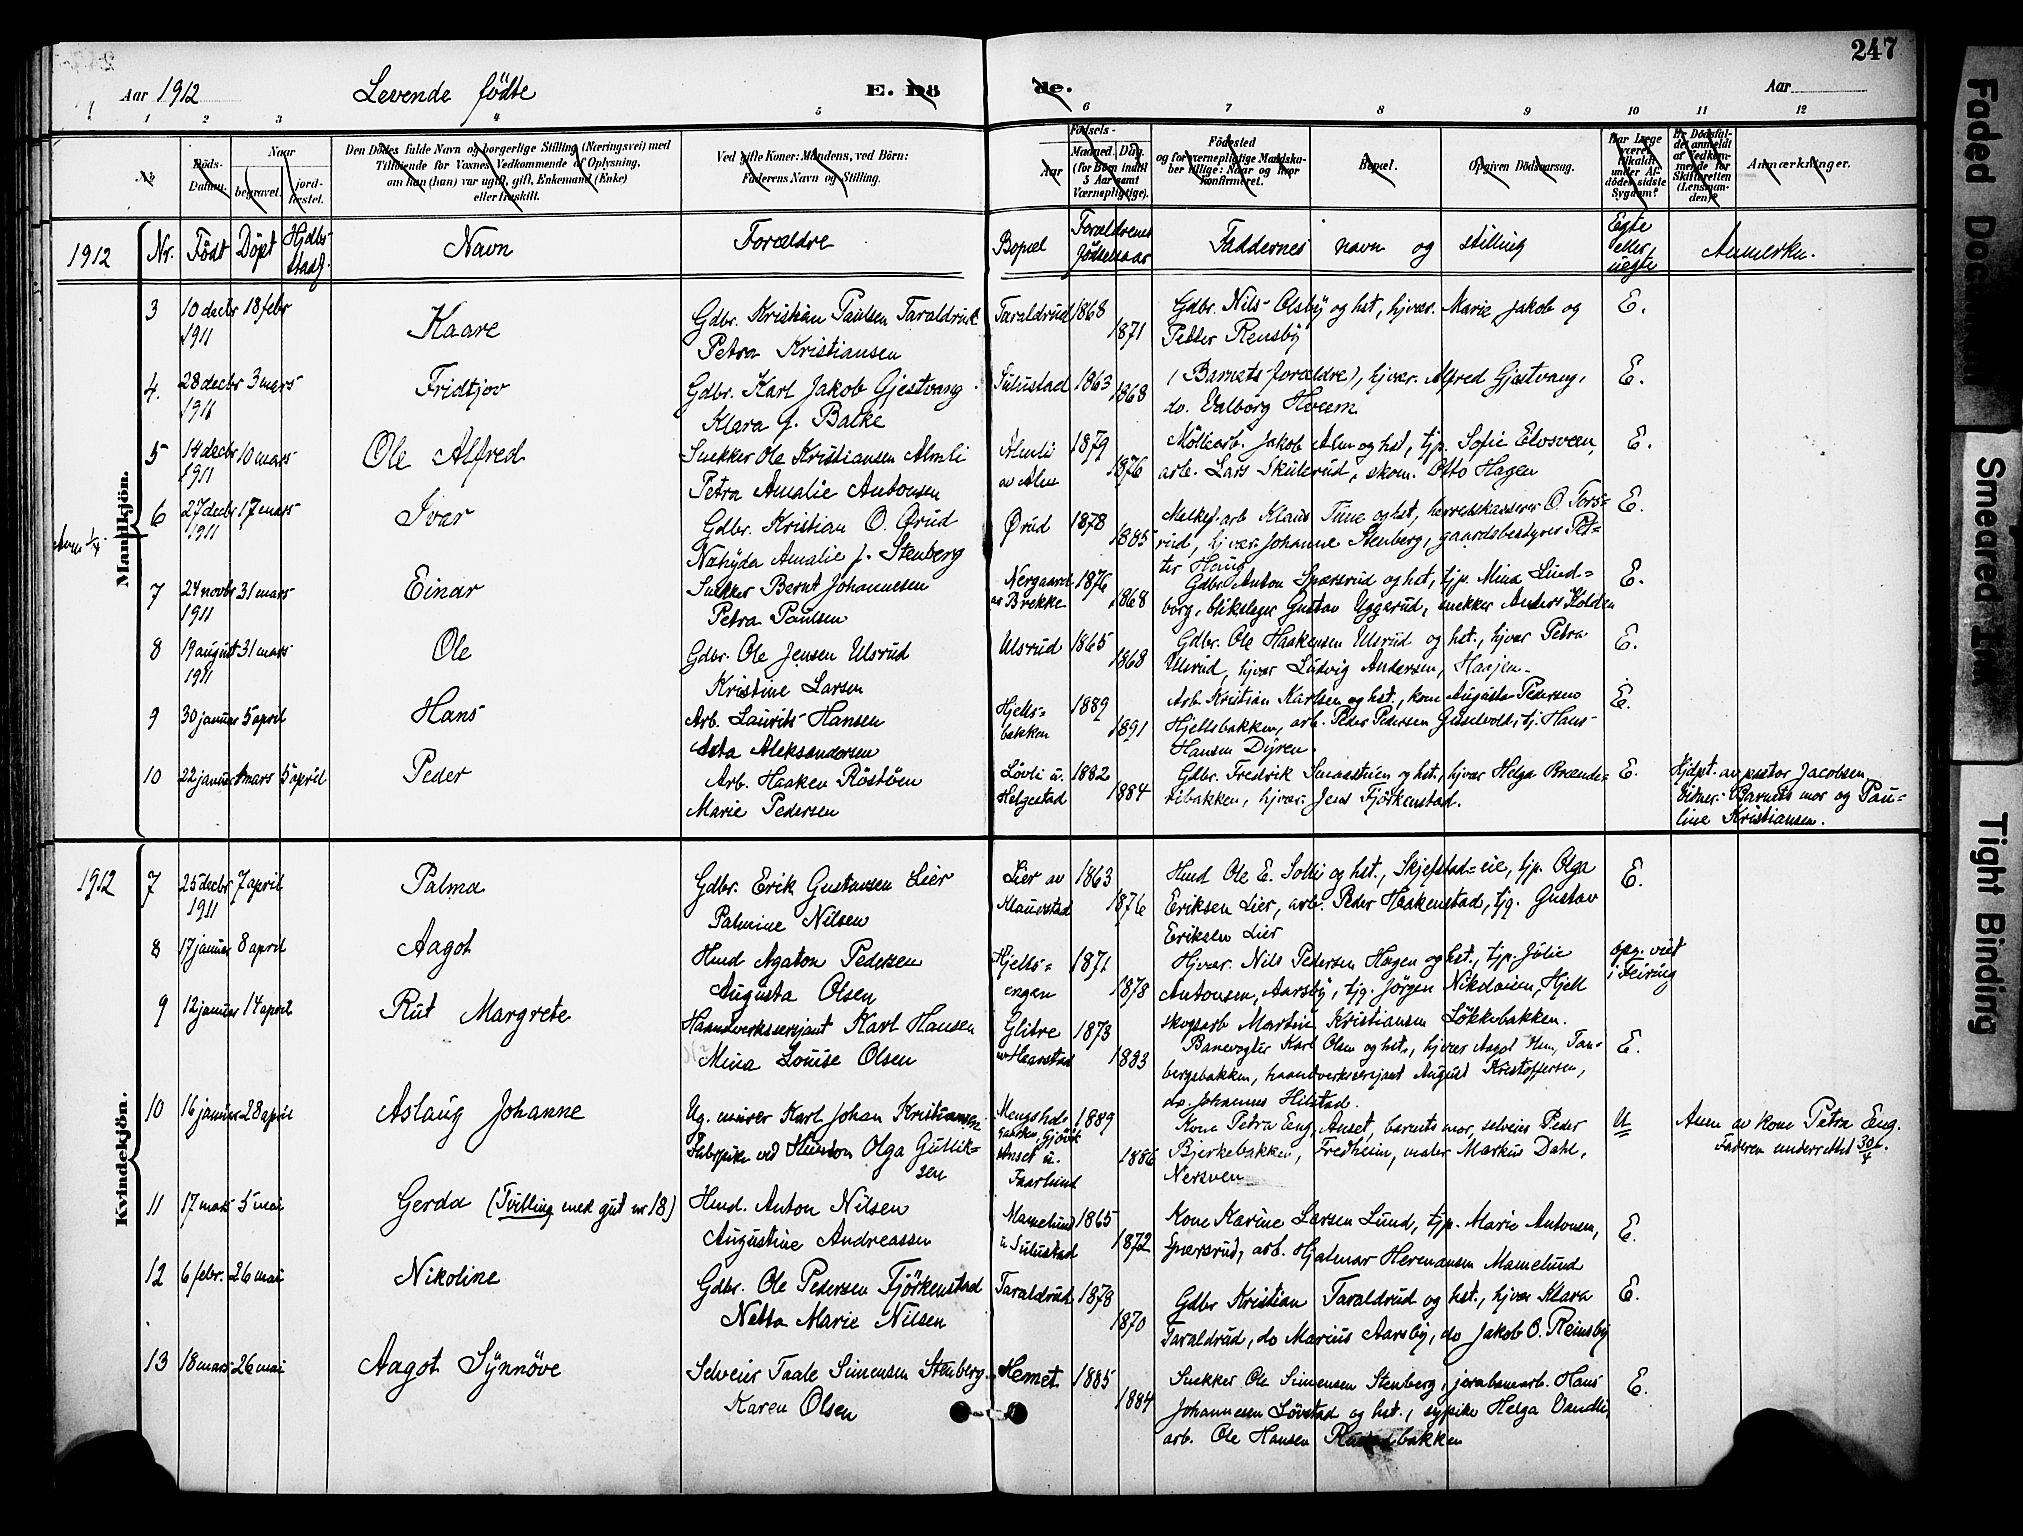 247
Aar 1912 Levende fødte E. Dö de. Aar
1 2 3 4 5 6 7 8 9 10 11 12
No. Döds-Datum. Naar begravet. jordfæstet.
Den Dödes fulde Navn og borgerlige Stilling (Næringsvei) med
Tilföiende for Voxnes Vedkommende af Oplysning,
om han (hun) var ugift, gift, Enkemand (Enke)
eller fraskilt.
Ved gifte Koner: Mandens, ved Börn:
Faderens Navn og Stilling.
Födsels-
Aar Maaned. Dag. (for Börn indtil 5 Aar samt Værnepligtige).
Födested
og for værnepligtige Mandskaber tillige: Naar og hvor Konfirmeret.
Bopæl. Opgiven Dödsaarsag.
Har Læge været tilkaldt under Afdödes sidste Sygdom?
Er Dödsfaldet anmeldt af Vedkommende for Skifteretten (Lensmanden)?
Anmærkninger.
1912 Nr. Født Döpt Hjdbs- stadf. Navn Forældre Bopæl Forældrenes fødselsaar Faddernes navn og stilling Egte eller uegte Anmerkn.
Mandkjön.
3 10 decbr 1911 18 febr Kaare
Gdbr. Kristian Paulsen Taraldrud
Petra Kristiansen
Taraldrud 1868 1871
Gdbr. Nils Olsby og hst, hjvær. Marie, Jakob og
Petter Rensby
E.
4. 28 decbr 1911 3 mars Fridtjov
Gdbr. Karl Jakob Gjestvang
Klara f. Balke
Sulustad 1863 1868
(Barnets forældre), hjvær. Alfred Gjestvang,
do. Valborg Hveem
E.
5 14 decbr 1911 10 mars Ole Alfred
Snekker Ole Kristiansen Almli
Petra Amalie Antonsen
Almli av Alm 1879 1876
Möllearb. Jakob Alm og hst, tjp. Sofie Elvsveen,
arb. Lars Skülerud, skom. Otto Hagen
E.
6 27 decbr 1911 17 mars Ivar
Gdbr. Kristian O. Ørud
Nahyda Amalie f. Stenberg
Ørud 1878 1885
Melkef.arb Klaus Tune og hst, herredskasserer O. Tors-
rud, hjvær. Johanne Stenberg, gaardsbestyrer Pet-
ter Haug
E.
7 24 novbr 1911 31 mars Einar
Snekker Bernt Johannesen
Petra Paulsen
Nergaard av Brekke 1876 1868
Gdbr. Anton Spærsrud og hst, tjp. Mina Lund-
borg, blikslager Gustav Uggerud, snekker Anders Kolden
E.
8 19 august 1911 31 mars Ole
Gdbr. Ole Jensen Ulsrud
Kristine Larsen
Ulsrud 1865 1868
Gdbr. Ole Haakensen Ulsrud og hst., hjvær Petra
Ulsrud, hjvær Ludvig Andersen,
E.
9 30 januar 5 april Hans
Arb. Laurits Hansen
Asta Aleksandersen
Hjells- bakken 1889 1891
Arb. Kristian Karlsen og hst., kone Augusta Pedersen
Hjellsbakken, arb. Peder Pedersen Gusetvold, tj. Hans
Hansen Dyren
E.
10 22 januar mars 5 april Peder
Arb. Haaken Röstöen
Marie Pedersen
Løvli u. Helgestad 1882 1884
Gdbr. Fredrik Smaastuen og hst., hjvær Helga Brænde-
libakken, hjvær. Jens Fjörkenstad.
E.
Hjdpt. av pastor Jacobsen
Vidner: Barnets mor og Pau-
line Kristiansen.
Kvindekjön.
1912 7 25 decbr 1911 7 april Palma
Gdbr. Erik Gustavsen Lier
Palmine Nilsen
Lier av Klauvstad 1863 1876
Hmd Ole E. Solli og hst., Skjefstad-eie, tjp. Olga
Eriksen Lier, arb. Peder Haakenstad, tjg. Gustav
Eriksen Lier
E.
8 17 januar 8 april Aagot
Hmd Agaton Pedersen
Augusta Olsen
Hjells- engen 1871 1878
Hjvær. Nils Pedersen Hagen og hst., tjp. Julie
Antonsen, Aarsby, tjg. Jörgen Nikolaisen, Hjell
skogsarb Martin Kristiansen Løkkebakken.
opg. viet i Feiring
9 12 januar 14 april Rut Margrete
Haandverkssersjant Karl Hansen
Mina Louise Olsen
Glitre av Haarstad 1873 1883
Banevogter Karl Olsen og hst., hjvær Aagot Tan-
bergsbakken, haandverkssersjant August Kristoffersen,
do. Johannes Hilstad.
E.
10 16 januar 28 april Aslaug Johanne
Ug. murer Karl Johan Kristiansen
Fabrpike ved Olga Gullik-
sen
Gjøvik Anset u. Faarlund 1889 1886
Kone Petra Eng, Anset, barnets mor, selveier Peder
Bjerkebakken, Fredheim, maler Markus Dahl,
Nersveen
U
Anm av kone Petra Eng.
Faderen underrettet 30/4.
11 17 mars 5 mai Gerda (Tvilling med gut nr 18)
Hmd. Anton Nilsen
Augustine Andreassen
Mamelund u Sulustad 1865 1872
Kone Karine Larsen Lund, tjp. Marie Antonsen,
Spærsrud, arb. Hjalmar Hermansen Mamelund
E.
12 6 febr. 26 mai Nikoline
Gdbr. Ole Pedersen Fjörkenstad
Netta Marie Nilsen
Taraldrud 1878 1870
Gdbr Kristian Taraldrud og hst., hjvær Klara
Taraldrud, do Marius Aarsby, do Jakob O. Reinsby
E.
13 18 mars 26 mai Aagot Synnöve
Selveier Taale Simensen Stenberg
Karen Olsen
Hemet 1885 1884
Snekker Ole Simensen Stenberg, jernbanearb. Hans
Johannesen Løvstad og hst., sypike Helga Vandli,
arb. Ole Hansen
E.
Faded Document
Smeared Ink
Tight Binding